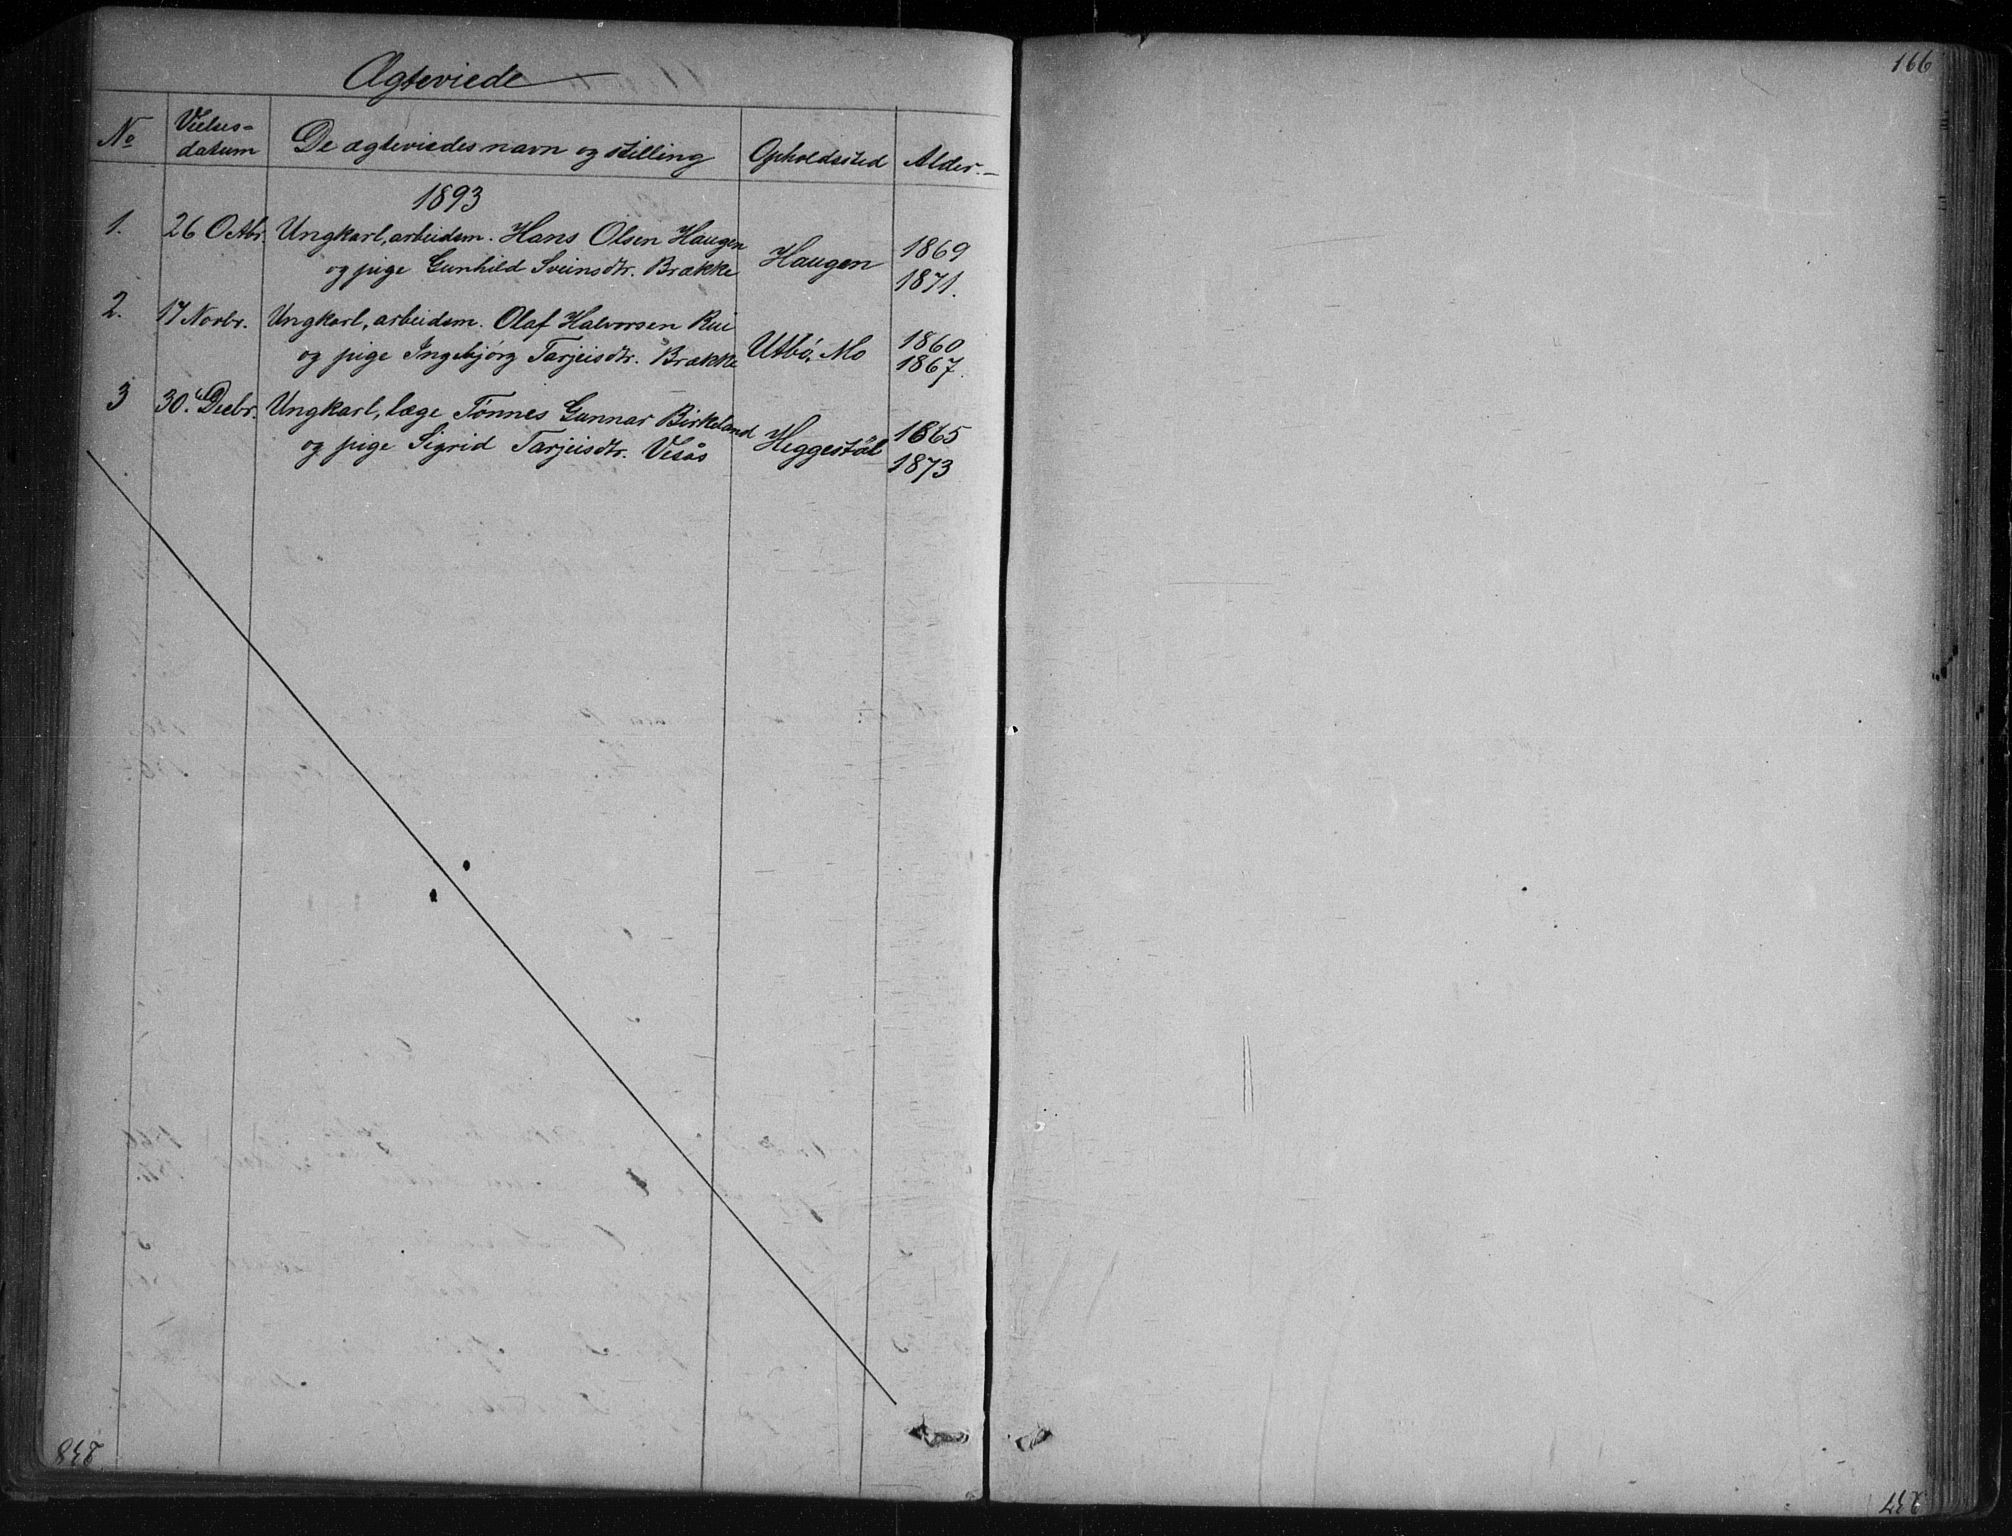 Ægteviede
No Vielses-datum De ægteviedes navn og stilling Opholdssted Alder.
1893
1. 26 Octbr. Ungkarl, arbeidsm. Hans Olsen Haugen Haugen 1869
og pige Gunhild Sveinsdtr. Brække 1871.
2. 17 Novbr. Ungkarl, arbeidsm. Olaf Halvorsen Rui Utbö, Mo 1860
og pige Ingebjörg Tarjeisdtr. Brække 1867.
3 30. Decbr. Ungkarl, læge Tønnes Gunnar Birkeland Heggestöl 1865
og pige Sigrid Tarjeisdtr. Vesås 1873
166
238
237